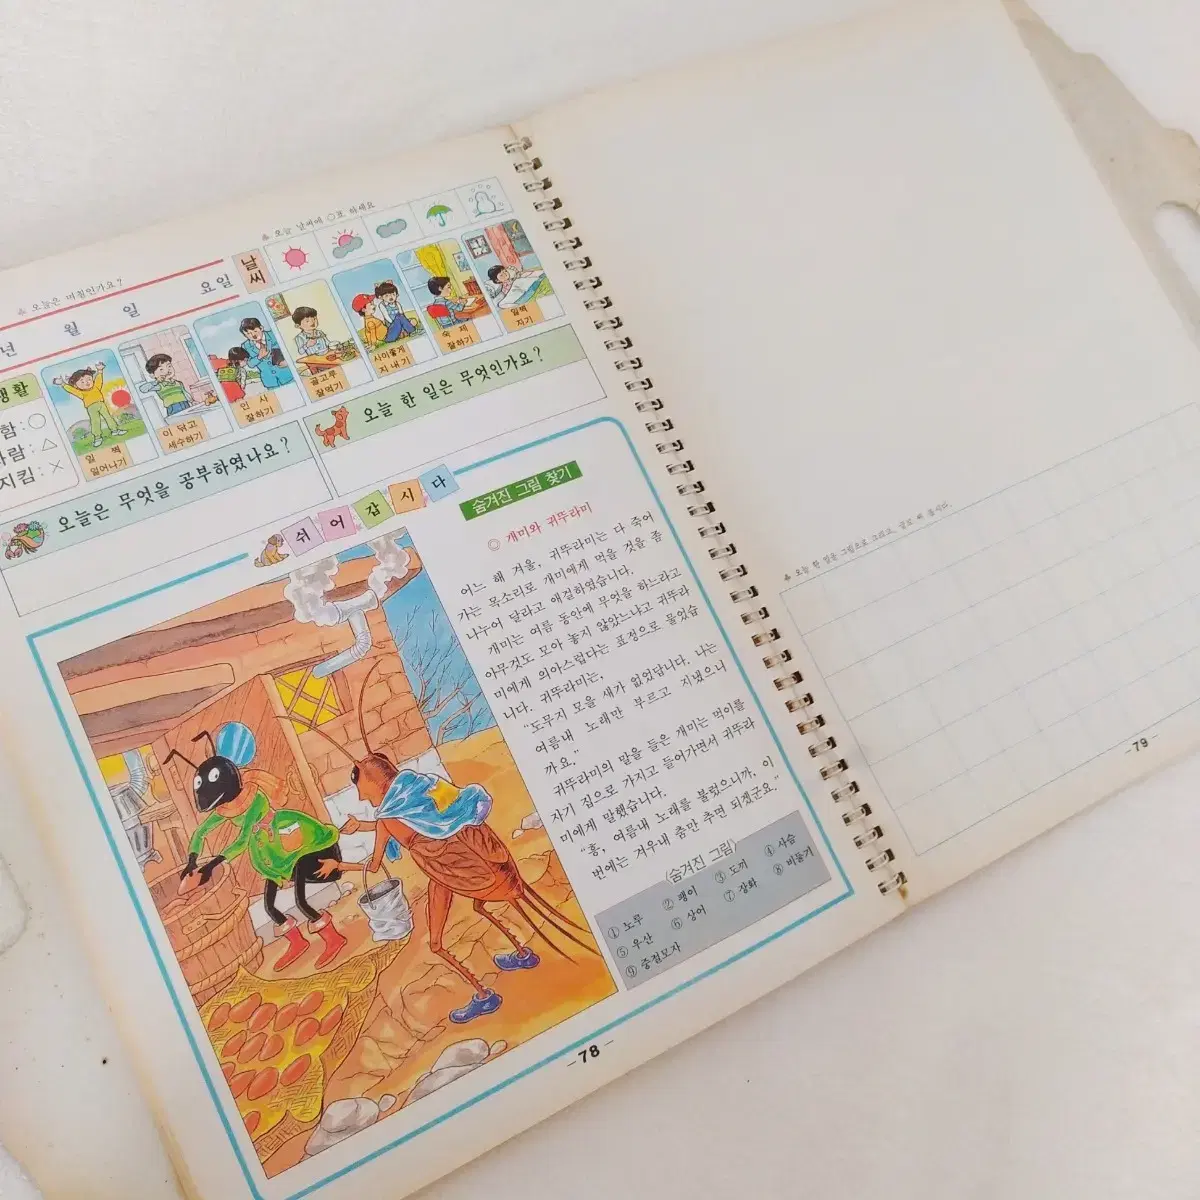 ♣ 오늘은 며칠인가요?
년 월 일 요일
날씨
♣ 오늘 날씨에 ○표 하세요
생활
함 : ○
: △
지킴 : ×
일찍 일어나기
이 닦고 세수하기
인사 잘하기
골고루 잘먹기
사이좋게 지내기
숙제 잘하기
일찍 자기
오늘은 무엇을 공부하였나요?
오늘 한 일은 무엇인가요?
쉬어갑시다
숨겨진 그림 찾기
◎ 개미와 귀뚜라미
어느 해 겨울, 귀뚜라미는 다 죽어
가는 목소리로 개미에게 먹을 것을 좀
나누어 달라고 애걸하였습니다.
개미는 여름 동안에 무엇을 하느라고
아무것도 모아 놓지 않았느냐고 귀뚜라
미에게 의아스럽다는 표정으로 물었습
니다. 귀뚜라미는,
"도무지 모을 새가 없었답니다. 나는
여름내 노래만 부르고 지냈으니
까요."
귀뚜라미의 말을 들은 개미는 먹이를
자기 집으로 가지고 들어가면서 귀뚜라
미에게 말했습니다.
"흥, 여름내 노래를 불렀으니까, 이
번에는 겨우내 춤만 추면 되겠군요."
(숨겨진 그림)
① 노루 ② 팽이 ③ 도끼 ④ 사슴
⑤ 우산 ⑥ 상어 ⑦ 장화 ⑧ 비둘기
⑨ 중절모자
-78-
♣ 오늘 한 일을 그림으로 그리고, 글로 써 봅시다.
-79-